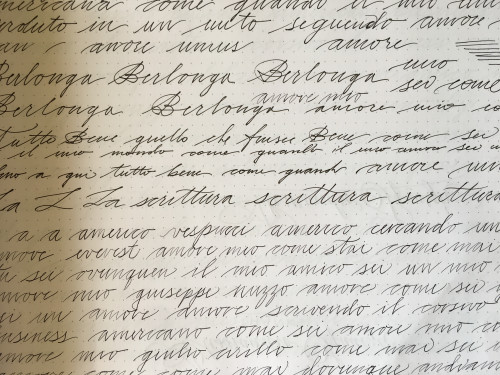 americana come quando il mio
perduto in un mito seguendo amore
amore umus amore
mio
Berlonga Berlonga Berlonga sei come
amore mio
Berlonga Berlonga amore mio
Tutto Bene quello che finisce Bene come sei
il mio mondo come quando il mio amore sei
a qui tutto bene come quando amore
La L La scrittura scrittura scrittura
a a americo vespucci americo cercando un
amore everest amore mio come stai come mai
tu sei ovunque il mio amico sei un mio
amore mio giuseppe nuzzo amore come sei
sei un amore amore scrivendo il corsivo
business americano come sei amore mio
amore mio giulio cirillo come mai sei
come come mai dovunque andiamo